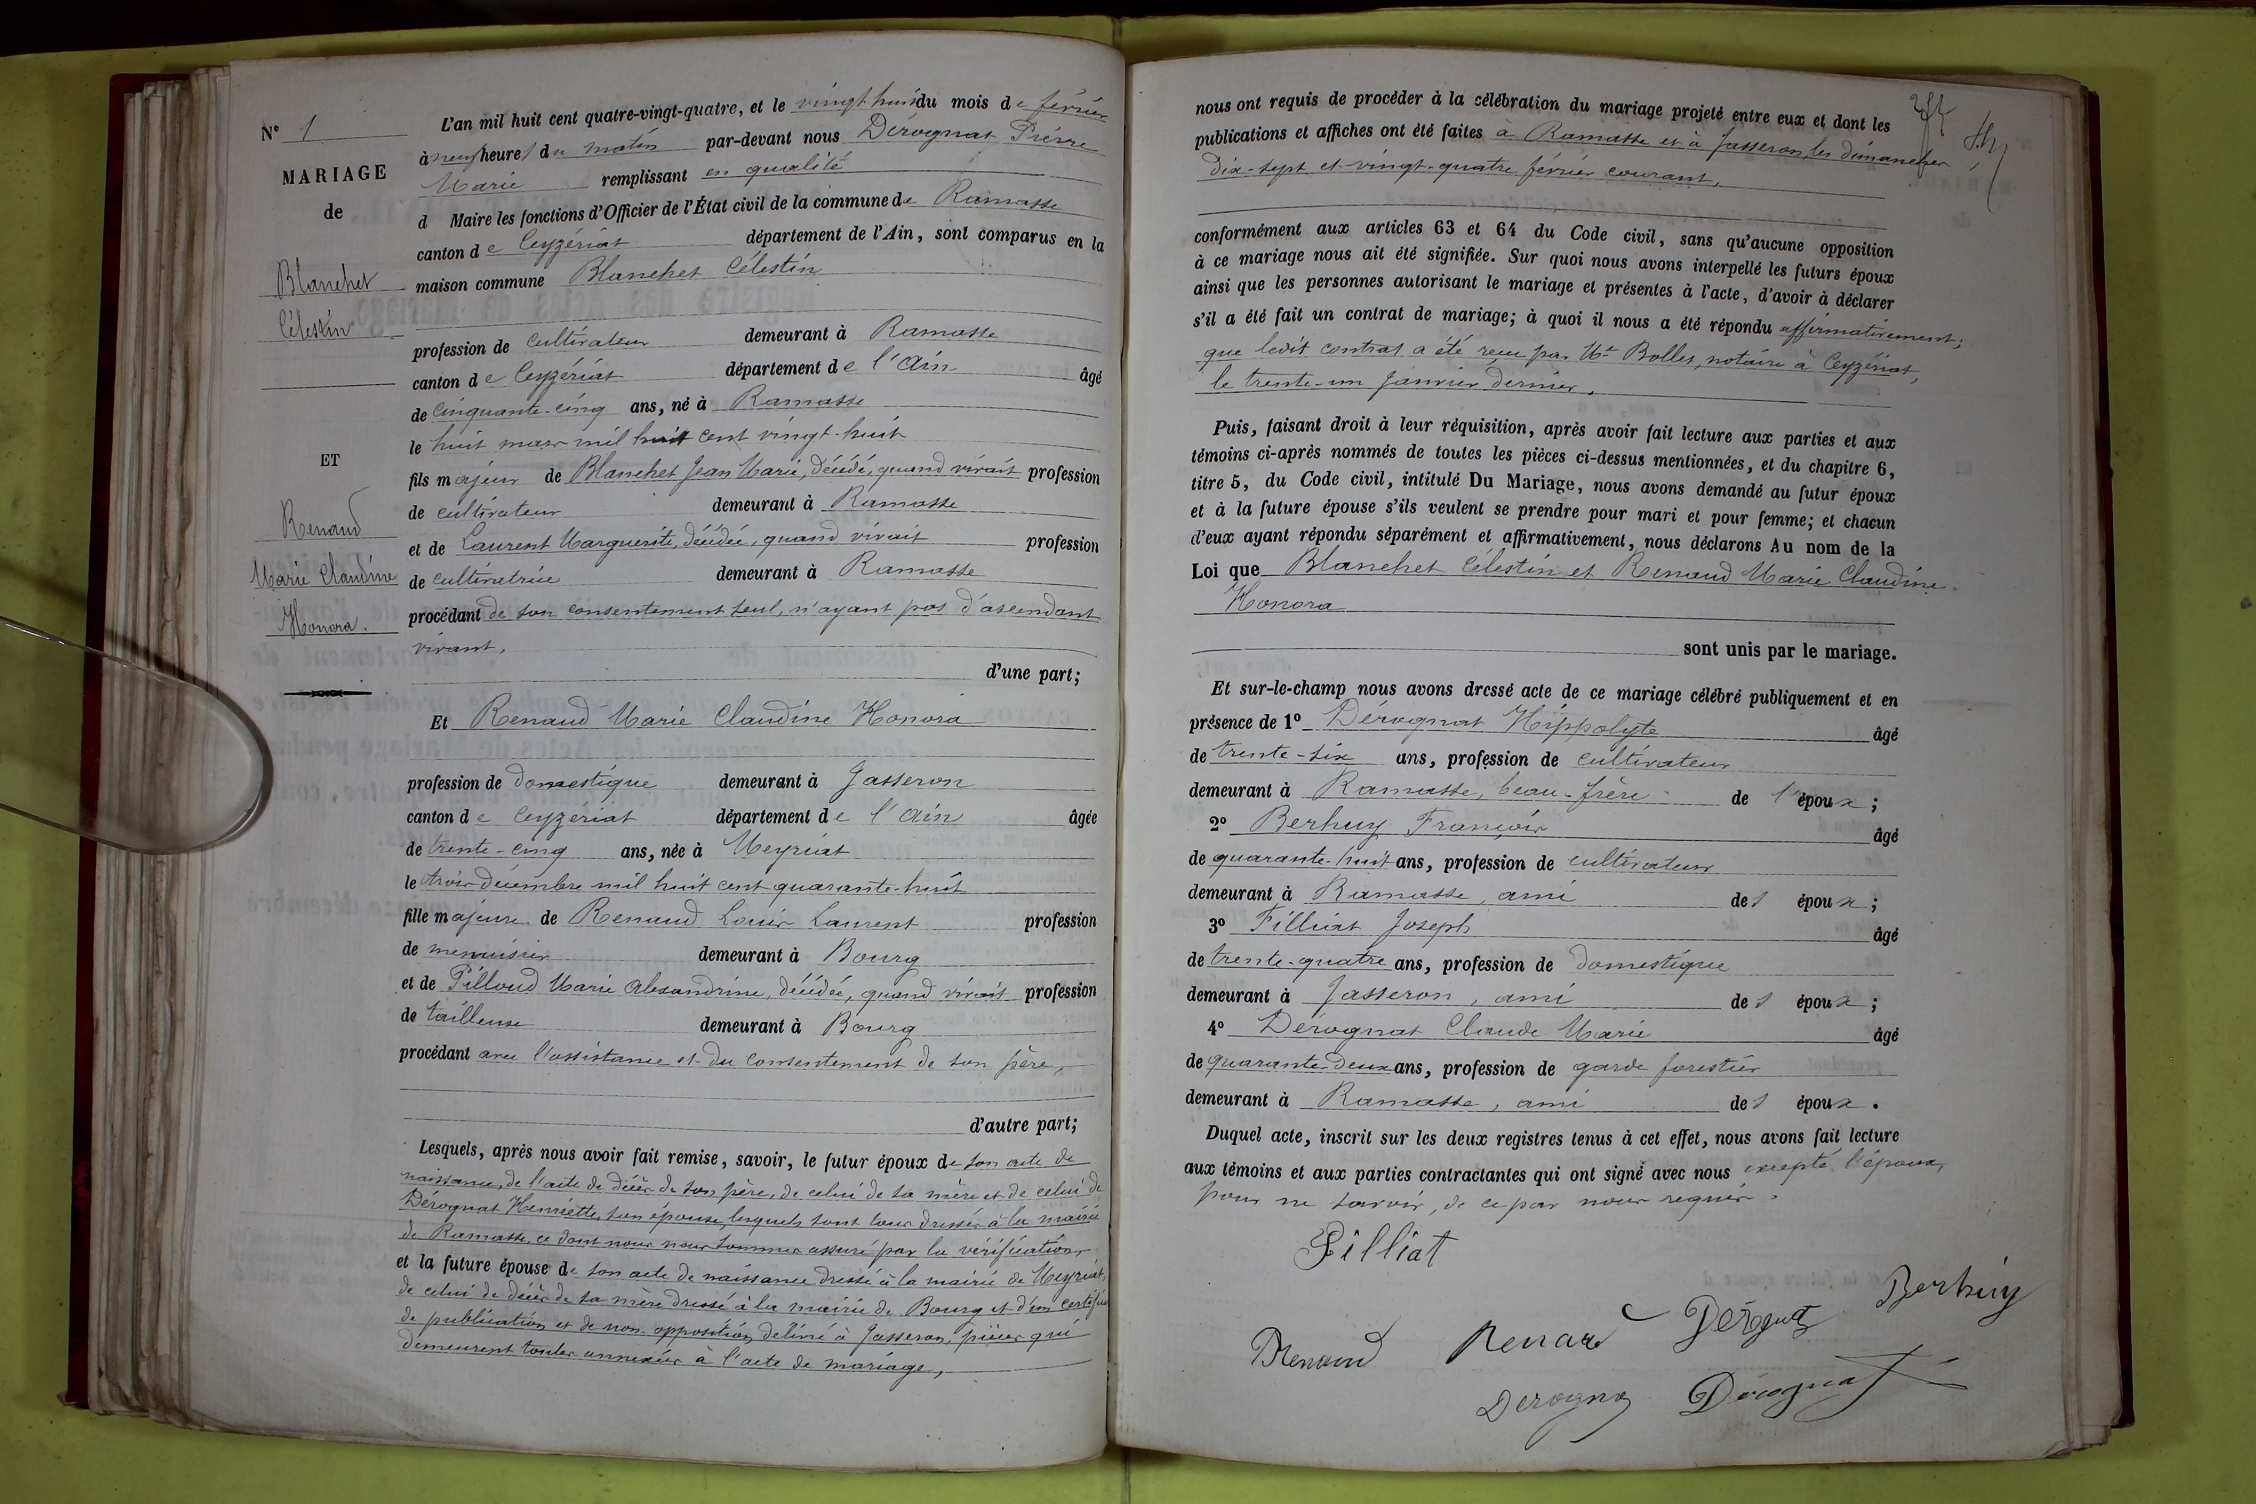 N° 1
MARIAGE
de
Blanchet
Célestin
ET
Renaud
Marie Claudine
Honora.
L'an mil huit cent quatre-vingt-quatre, et le vingt huit du mois de février
à neuf heures du matin par-devant nous Dérognat Pierre
Marie remplissant en qualité
d Maire les fonctions d'Officier de l'État civil de la commune de Ramasse
canton de Ceyzériat département de l'Ain, sont comparus en la
maison commune Blanchet Célestin
profession de cultivateur demeurant à Ramasse
canton de Ceyzériat département de l'Ain âgé
de cinquante-cinq ans, né à Ramasse
le huit mars mil huit cent vingt-huit
fils majeur de Blanchet Jean Marie, décédé, quand vivait profession
de cultivateur demeurant à Ramasse
et de Laurent Marguerite, décédée, quand vivait profession
de cultivatrice demeurant à Ramasse
procédant de son consentement seul, n'ayant pas d'ascendant
vivant,
d'une part;
Et Renaud Marie Claudine Honora
profession de domestique demeurant à Jasseron
canton de Ceyzériat département de l'Ain âgée
de trente-cinq ans, née à Meyriat
le trois décembre mil huit cent quarante-huit
fille majeure de Renaud Louis Laurent profession
de menuisier demeurant à Bourg
et de Pilloud Marie Alexandrine, décédée, quand vivait profession
de tailleuse demeurant à Bourg
procédant avec l'assistance et du consentement de son père,
d'autre part;
Lesquels, après nous avoir fait remise, savoir, le futur époux de son acte de
naissance, de l'acte de décès de son père, de celui de sa mère et de celui de
Dérognat Henriette, son épouse, lesquels sont tous dressés à la mairie
de Ramasse, ce dont nous nous sommes assuré par la vérification
et la future épouse de son acte de naissance dressé à la mairie de Meyriat,
de celui de décès de sa mère dressé à la mairie de Bourg et d'un certificat
de publication et de non opposition délivré à Jasseron, pièces qui
demeurent toutes annexées à l'acte de mariage,
nous ont requis de procéder à la célébration du mariage projeté entre eux et dont les
publications et affiches ont été faites à Ramasse et à Jasseron, les dimanches
dix-sept et vingt-quatre février courant,
conformément aux articles 63 et 64 du Code civil, sans qu'aucune opposition
à ce mariage nous ait été signifiée. Sur quoi nous avons interpellé les futurs époux
ainsi que les personnes autorisant le mariage et présentes à l'acte, d'avoir à déclarer
s'il a été fait un contrat de mariage; à quoi il nous a été répondu affirmativement;
que ledit contrat a été reçu par Me Bollet, notaire à Ceyzériat,
le trente-un janvier dernier,
Puis, faisant droit à leur réquisition, après avoir fait lecture aux parties et aux
témoins ci-après nommés de toutes les pièces ci-dessus mentionnées, et du chapitre 6,
titre 5, du Code civil, intitulé Du Mariage, nous avons demandé au futur époux
et à la future épouse s'ils veulent se prendre pour mari et pour femme; et chacun
d'eux ayant répondu séparément et affirmativement, nous déclarons Au nom de la
Loi que Blanchet Célestin et Renaud Marie Claudine
Honora
sont unis par le mariage.
Et sur-le-champ nous avons dressé acte de ce mariage célébré publiquement et en
présence de 1° Dérognat Hippolyte âgé
de trente-six ans, profession de cultivateur
demeurant à Ramasse, beau-frère de l'époux;
2° Berhuy François âgé
de quarante-huit ans, profession de cultivateur
demeurant à Ramasse, ami des époux;
3° Filliat Joseph âgé
de trente-quatre ans, profession de domestique
demeurant à Jasseron, ami des époux;
4° Dérognat Claude Marie âgé
de quarante-deux ans, profession de garde forestier
demeurant à Ramasse, ami des époux.
Duquel acte, inscrit sur les deux registres tenus à cet effet, nous avons fait lecture
aux témoins et aux parties contractantes qui ont signé avec nous excepté l'époux,
pour ne savoir, de ce par nous requis.
Filliat
Berhuy
Renaud
Dérognat